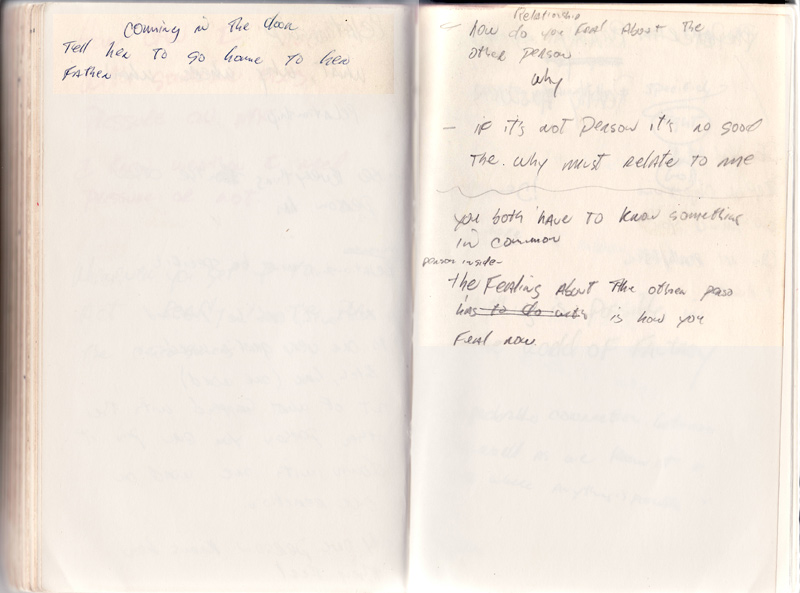 coming in the door
Tell her to go home to her
Father
Relationship
- how do you feel About the
other person
why
- if it's not person it's no good
The. why must relate to me
you both have to know something
in common
person inside
the Feeling About The other perso
has to do with is how you
Feel now.